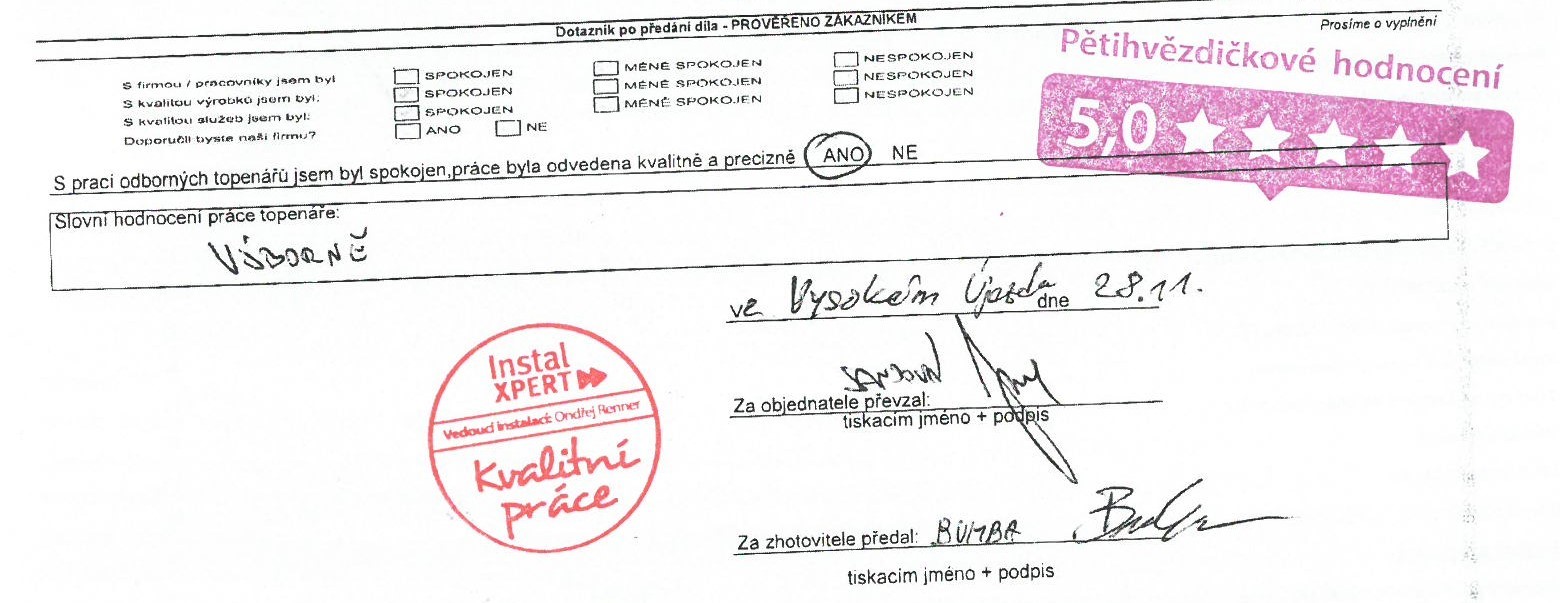 Dotazník po předání díla - PROVĚŘENO ZÁKAZNÍKEM
Prosíme o vyplnění
Pětihvězdičkové hodnocení
5,0
S firmou / pracovníky jsem byl SPOKOJEN MÉNĚ SPOKOJEN NESPOKOJEN
S kvalitou výrobků jsem byl: SPOKOJEN MÉNĚ SPOKOJEN NESPOKOJEN
S kvalitou služeb jsem byl: SPOKOJEN MÉNĚ SPOKOJEN NESPOKOJEN
Doporučili byste naší firmu? ANO NE
S praci odborných topenářů jsem byl spokojen,práce byla odvedena kvalitně a precizně ANO NE
Slovní hodnocení práce topenáře:
VÝBORNĚ
ve Vysokém Újezdu dne 28.11.
Instal
XPERT
Vedoucí instalací: Ondřej Renner
Kvalitní
práce
Za objednatele převzal:
tiskacím jméno + podpis
Za zhotovitele předal: BUMBA
tiskacím jméno + podpis